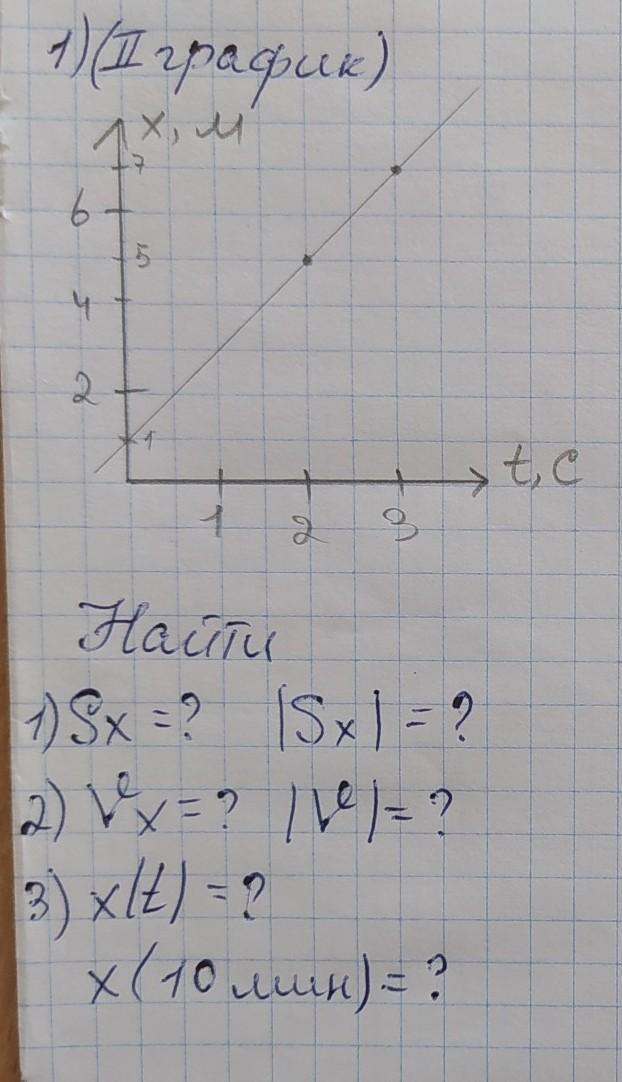 1) (II график)
x, м
7
6
5
4
2
1
t, с
1 2 3
Найти
1) Sx = ? |Sx| = ?
2) Vx = ? |V| = ?
3) x(t) = ?
x(10 мин) = ?